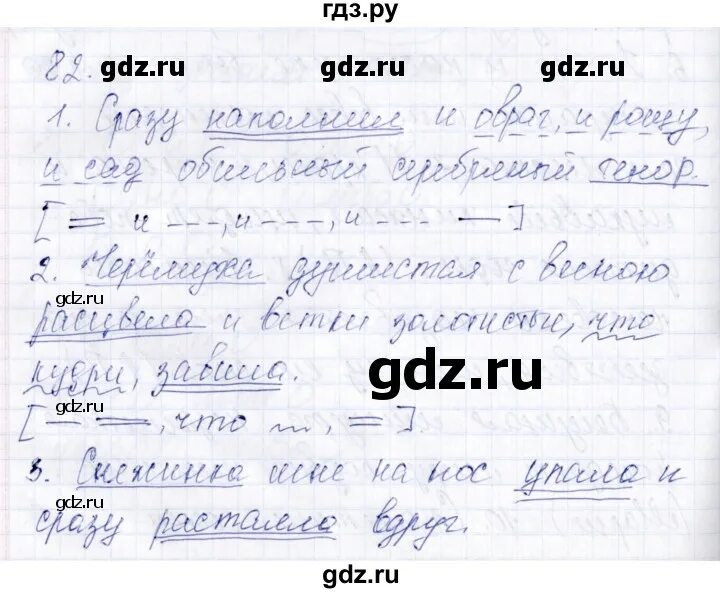 гдз.ру
82.
gdz.ru gdz.ru
1. Сразу наполнил и овраг, и рощу,
и сад обильный серебряный тенор.
gdz.ru gdz.ru
[ и , и , и ]
2. Черёмуха душистая с весною
gdz.ru
расцвела и ветки золотистые, что
gdz.ru
кудри, завила.
gdz.ru
[ , что , ].
3. Снежинка мне на нос упала и
gdz.ru gdz.ru
сразу растаяла вдруг.
gdz.ru